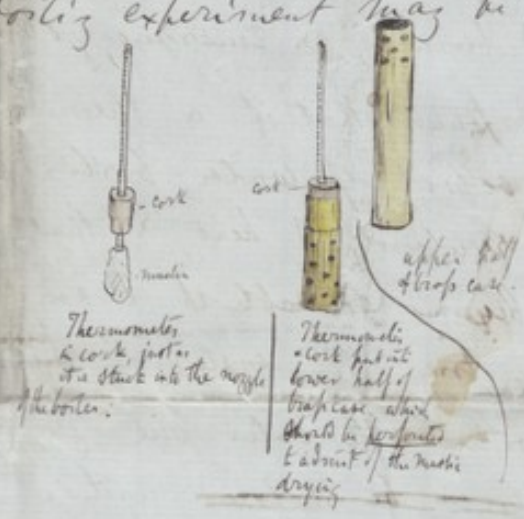 experiment may be
cork
muslin
cork
upper half
of brass case.
Thermometer
& cork, just as
it is stuck into the nozzle
of the boiler.
Thermometer
& cork put in
lower half of
brass case, which
should be perforated
to admit of the muslin
drying